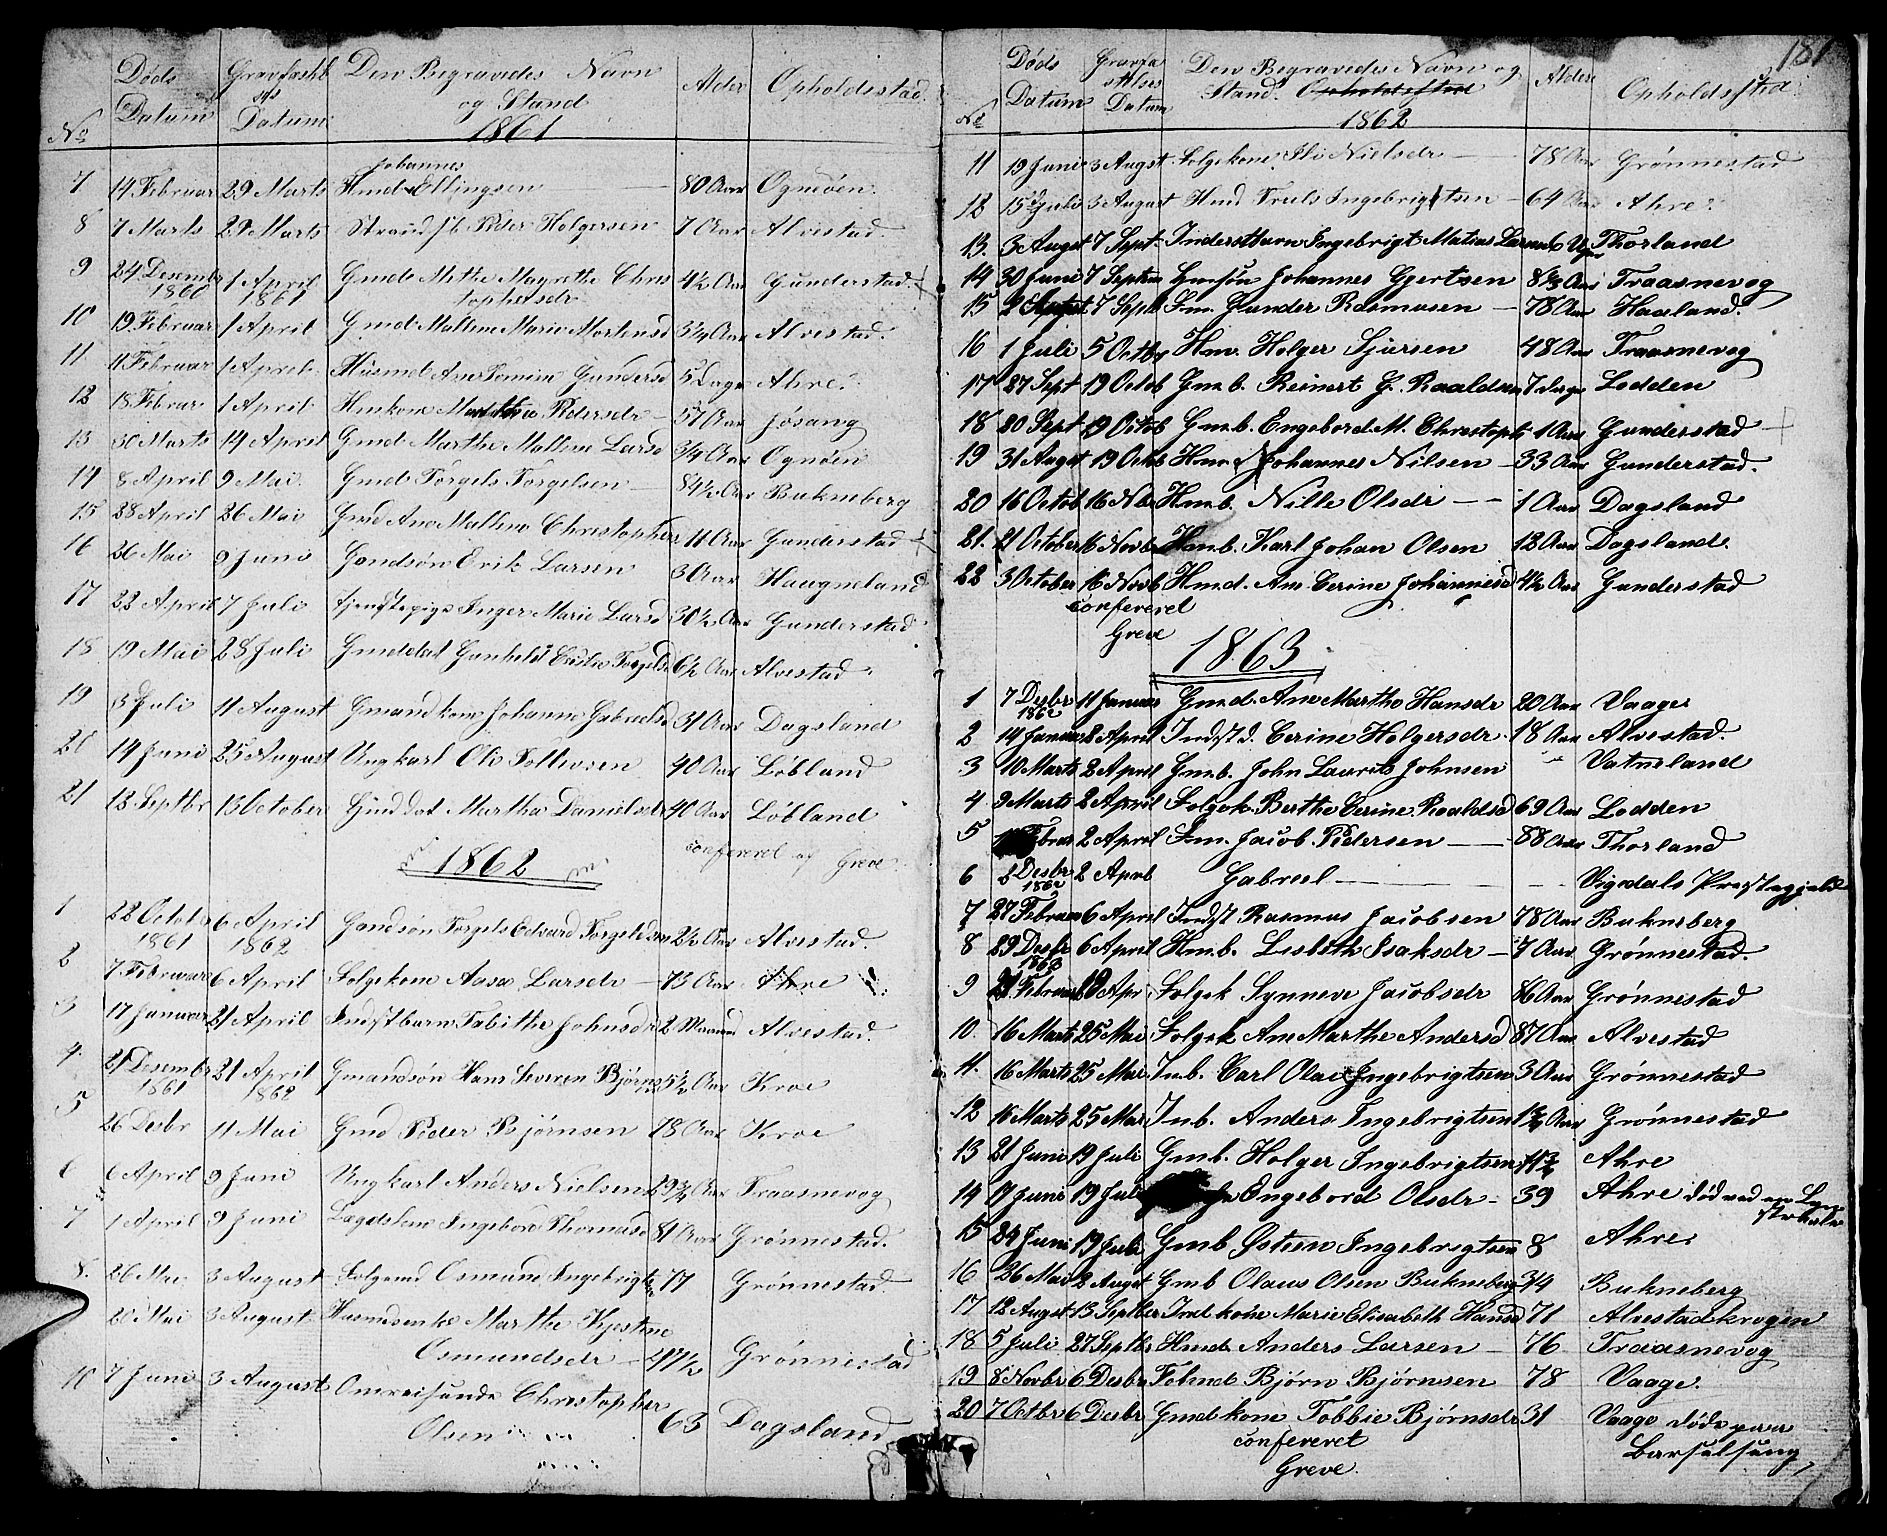 Døds Datum Gravfæstelses Datum Den Begravedes Navn og Stand Alder Opholdsstad.
No 1861
7 14 Februar 29 Marts Hmd Johannes Ellingsen 80 Aar Ognøen.
8 7 Marts 29 Marts Peder Holgersen 7 Aar Alvestad
9 24 Desembr 1860 1 April 1861 Gmd Mette Magrethe Chris
tophersdr 4½ Aar Gunderstad. +
10 19 Februar 1 April Gmd Mallene Marie Mortensd 3¼ Aar Alvestad.
11 11 Februar 1 April Husmd Ane Tomine Gundersd 5 Dage Ahre.
12 18 Februar 1 April Hmkone Pedersdr 57 Aar Jøsang
13 30 Marts 14 April Gmd Marthe Mallene Larsd ¾ Aar Ognøen
14 8 April 9 Mai Gmd Torgels Torgelsen 84½ Aar Bukneberg
15 28 April 26 Mai Gmd Ane Mallene Christophersd 11 Aar Gunderstad +
16 26 Mai 9 Juni Gmdsøn Erik Larsen 3 Aar Haugneland
17 22 April 7 Juli tjenstepige Inger Marie Larsd 30½ Aar Gunderstad
18 19 Mai 28 Juli Gmddat Gunhild Torgelsd 6½ Aar Alvestad.
19 3 Juli 11 August Gmandkone Johanne Gabrielsd 31 Aar Dagsland
20 14 Juni 25 August Ungkarl Ole Tollevsen 40 Aar Løbland
21 18 Septbr 13 October Gmddat Martha Danielsdr 40 Aar Løbland
confereret af Greve
1862
1 22 Octob 1861 6 April 1862 Gmdsøn Torgels Edvard Torgelsen 2½ Aar Alvestad.
2 7 Februar 6 April Folgekone Aasa Larsdr 73 Aar Ahre
3 17 Januar 21 April Indstbarn Tabithe Johnsdr 2 Maaned Alvestad.
4 21 Desembr 1861 21 April 1862 Gmandsøn Hans Severen Bjørnsen 5½ Aar Kroe
5 26 Desbr 11 Mai Gmd Peder Bjørnsen 78 Aar Kroe
6 6 April 9 Juni Ungkarl Anders Nielsen 29¾ Aar Traasnevog
7 1 April 9 Juni Lægdslem Ingebor Thomasd 81 Aar Grønnestad.
8 26 Mai 3 August Folgemd Osmund Ingebrigts 77 Grønnestad.
20 Mai 3 August Husmdsenke Marthe Kjestine
Osmundsdr 47½ Grønnestad
10 7 Juni 3 August Omreisende Christopher
Olsen 63 Dagsland
181
Døds Datum Gravfæstelses Datum Den Begravedes Navn og Stand. Opholdssted Alder Opholdssted
No 1862
11 19 Juni 3 Augst Folgekone Ili Nielsdr 78 Aar Grønnestad
12 15 Juli 3 August Hmd Truls Ingebrigtsen 64 Aar Ahre.
13. 3 Augst 7 Sept. Inderstbarn Ingebrigt Matias Larsen 6 Uger Thorland
14 30 Juni 7 Septem Gmsøn Johannes Gjertsen 8¾ Aar Traasnevog
15 2 Septbr 7 Septb Fm. Gunder Rasmusen 78 Aar Haaland.
16 1 Juli 5 Octbr Hm. Holger Sjursen 48 Aar Traasnevog
17 27 Sept 19 Octob Gmb. Reinert G. Raaldsen 7 dage Lodden
18 20 Sept 19 Octob Gmb. Engebord M. Christoph 1 Aar Gunderstad +
19 31 Augst 19 Octb Hm. Johannes Nilsen 33 Aar Gunderstad.
20 16 Octob 16 Nov Hmb. Nille Olsdr 1 Aar Dagsland
21. 21 October 16 Novb Hmb. Karl Johan Olsen 12 Aar Dagsland.
22 3 October 16 Novb Hmd. Ane Cerine Johannesd 4½ Aar Gunderstad
confereret
Greve
1863
1 7 Desbr 1862 11 Januar Gmd. Ane Martho Hansdr 20 Aar Vaage
2 14 Januar 2 April Indst d. Cerine Holgersdr 18 Aar Alvestad.
3 10 Marts 2 April Gmb. John Laurits Johnsen " Vatneland
4 9 Marts 2 April Folgek. Berthe Cerine Roaldsd 69 Aar Lodden
5 Februar 2 April Fm. Jacob Pedersen 88 Aar Thorland
6 2 Desbr 1862 2 Aprb Gabriel Vigedals Prestegjeld
7 27 Februar 6 April Indst Rasmus Jacobsen 78 Aar Bukneberg
8 29 Desbr 1862 6 April Hmb. Lisbeth Isaksdr 7 Aar Grønnestad.
9 21 Februar 12 Apr Folgek Synneve Jacobsdr 86 Aar Grønnestad
10. 16 Marts 25 Mai Folgek Ane Marthe Andersd 87 Aar Alvestad
11. 16 Marts 25 Mai Inb. Carl Olai Ingebrigtsen 3 Aar Grønnestad
12 16 Marts 25 Mai Inb. Anders Ingebrigtsen 1¾ Aar Grønnestad
13 21 Juni 19 Juli Gmb. Holger Ingebrigtsen 11¾ Ahre
14 17 Juni 19 Juli Engebord Olsdr 39 Ahre død ved en Lyn
straale
15 24 Juni 19 Juli Gmb Østen Ingebrigtsen 8 Ahre
16 26 Mai 2 Augst Gmb Olaus Olsen Bukneberg 34 Bukneberg
17 12 Augst 13 Septbr Indkone Marie Elisabeth Hansd 71 Alvestadkrogen
18 5 Juli 27 Septbr Hmd. Anders Larsen 76 Traasnevog
19 8 Novbr 6 Desbr Folmd Bjørn Bjørnsen 78 Vaage.
20 7 Octbr 6 Desbr Gmdkone Tobbie Bjørnsdr 31 Vaage døde paa
Barselseng
confereret
Greve.